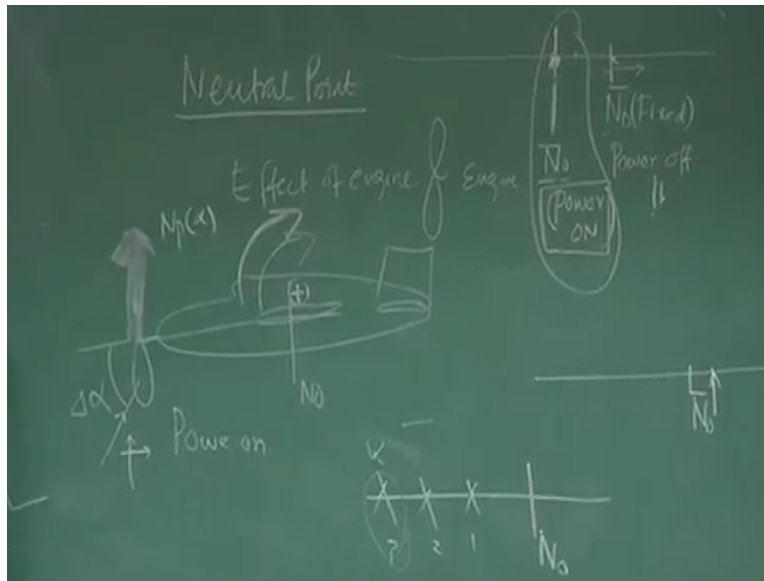 Neutral Point
N̄₀(Fixed)
Power off
N̄₀
(Power
ON)
Effect of engine
Engine
Np(α)
Δα
N₀
Powe on
N̄₀
3 2 1
N₀